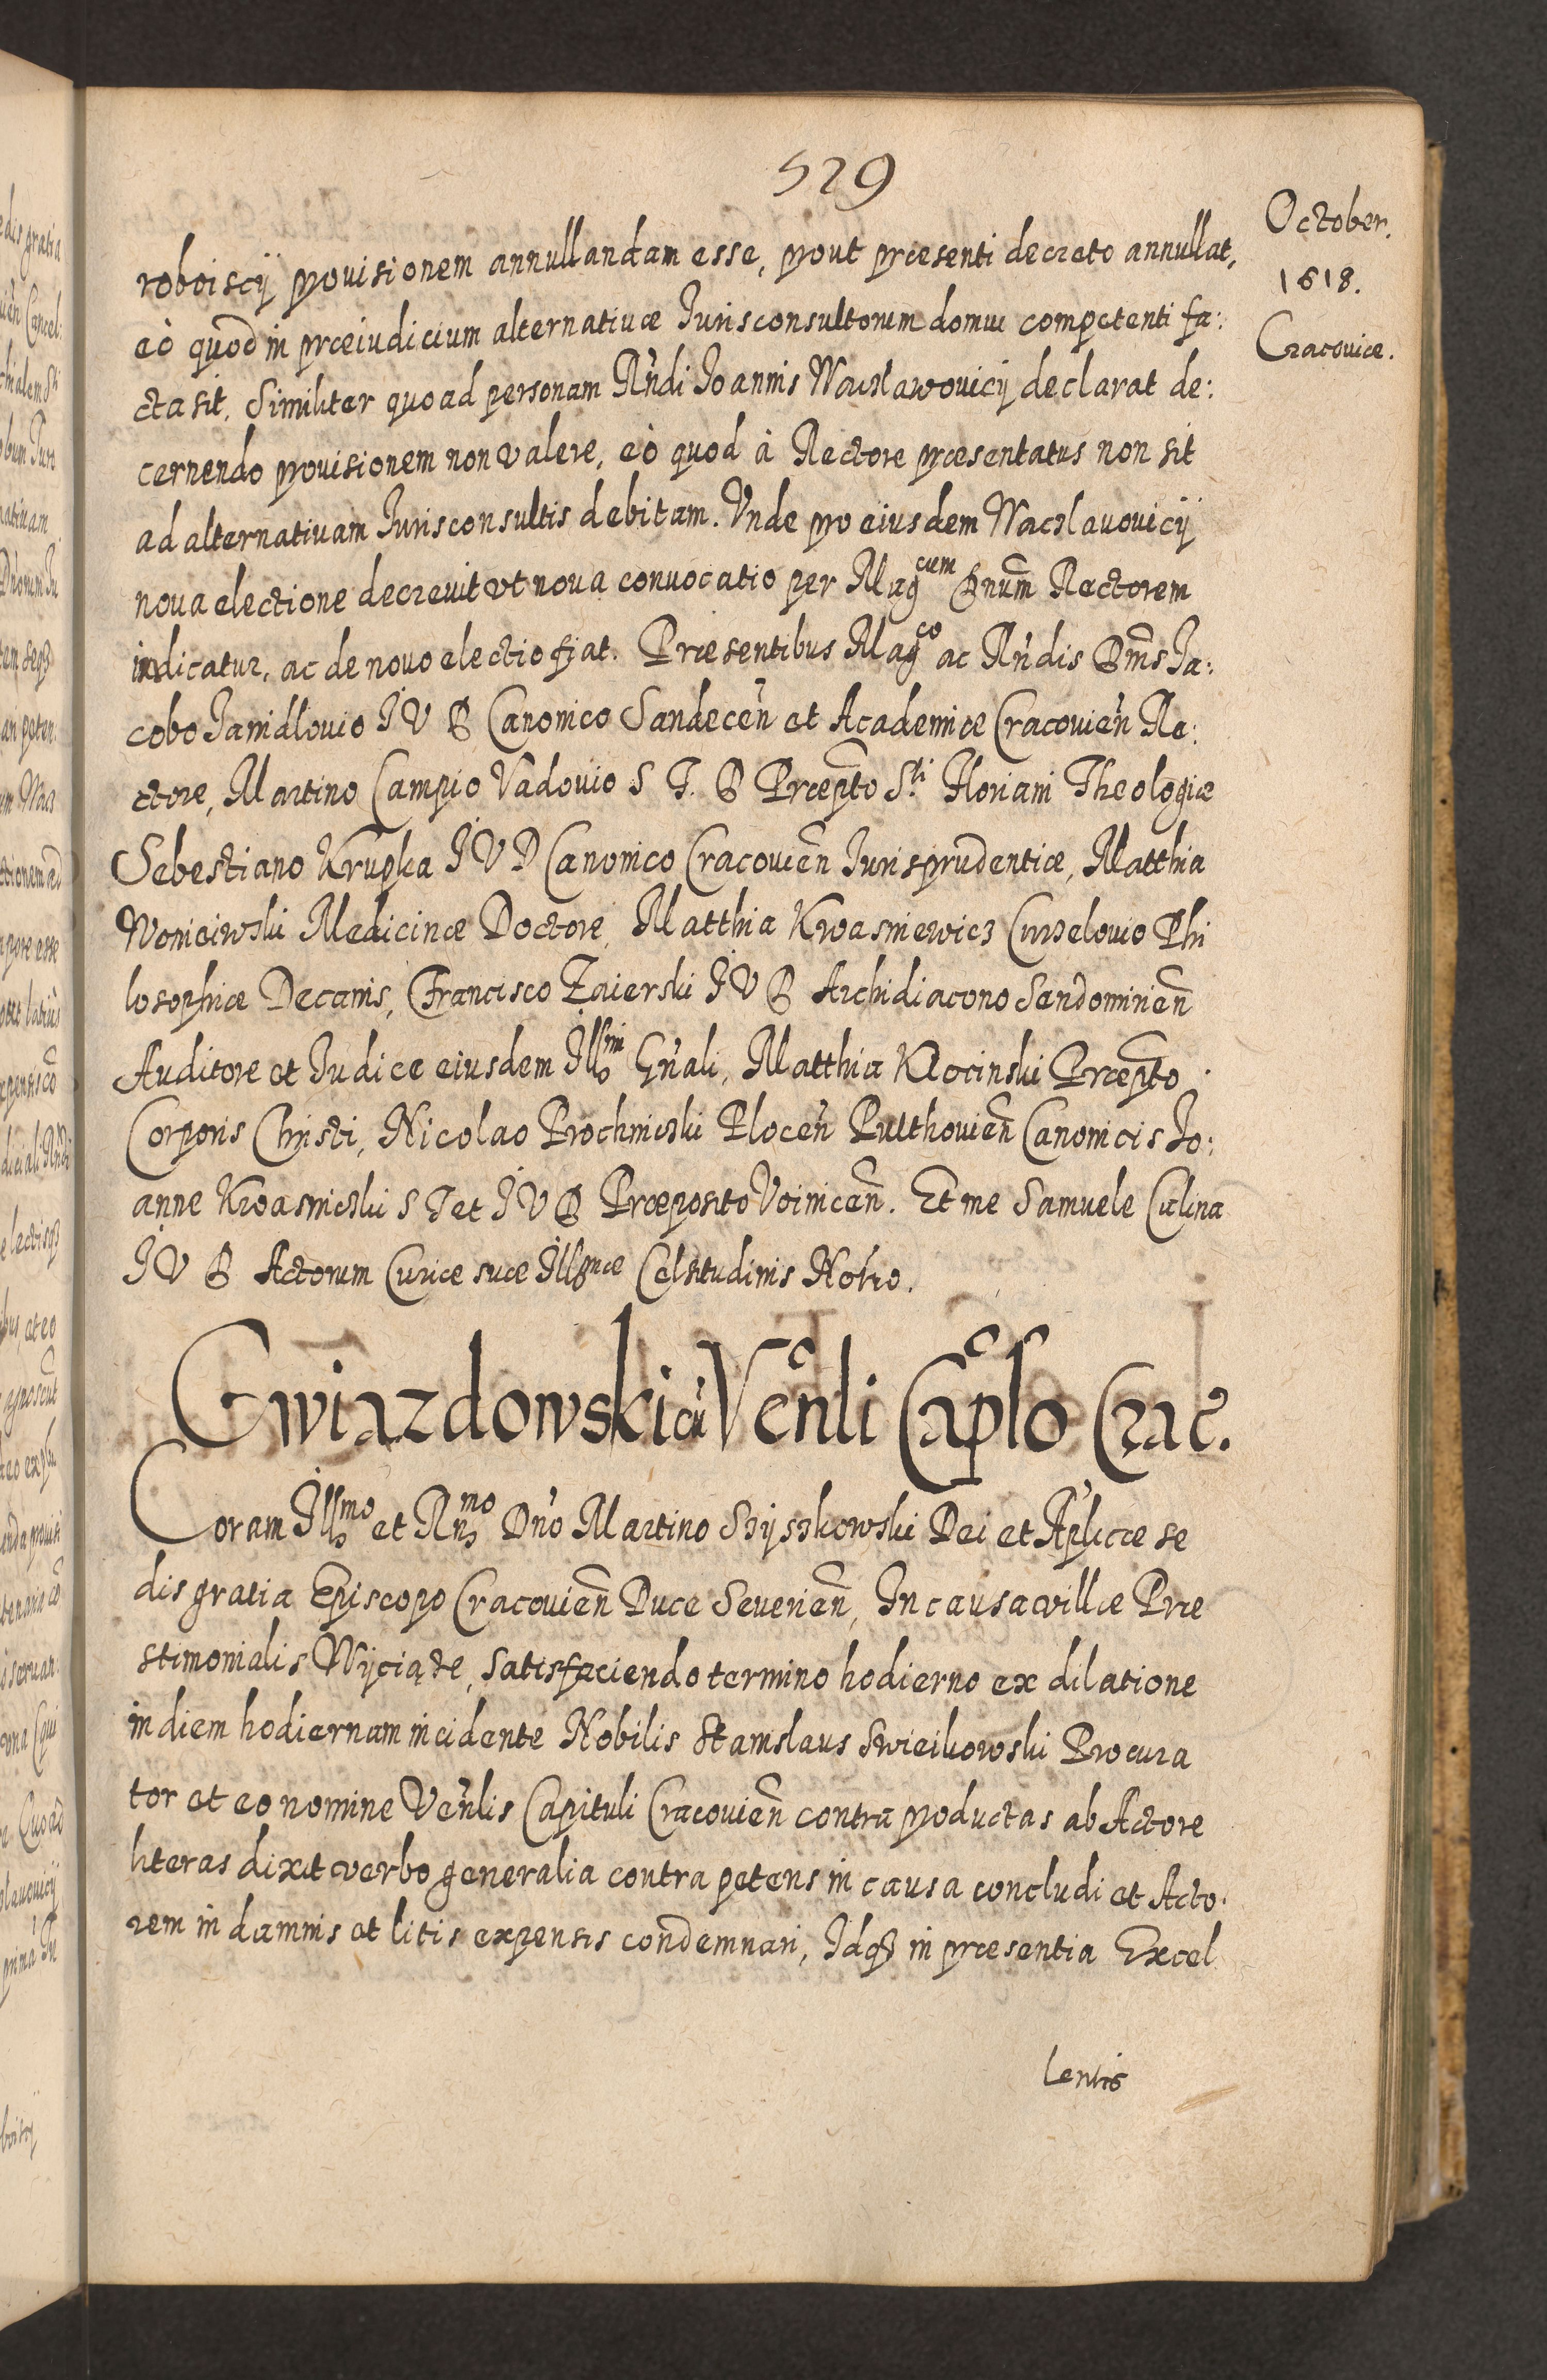 529
October.
1618.
Cracoviæ.
roboiscij provisionem annullandam esse, prout præsenti decreto annullat,
eò quod in præiudicium alternativæ Jurisconsultorum domui competenti fa:
cta sit. Similiter quoad personam Rndi Joannis Waczlawovicij declarat de:
cernendo provisionem non valere, eò quod à Rectore præsentatus non sit
ad alternativam Jurisconsultis debitam. Vnde pro eiusdem Waczlavovicij
nova electione decrevit vt nova convocatio per Magcum Dnum Rectorem
indicatur, ac de novo electio fiat. Præsentibus Magco ac Rndis Dnis Ja:
cobo Janidlovio J V D Canonico Sandecen et Academiæ Cracovien Re:
ctore, Martino Campio Vadovio S T. D Præpto Sti Floriani Theologiæ
Sebestiano Krupka J V D Canonico Cracovien Jurisprudentiæ, Matthia
Wonieiwski Medicinæ Doctore, Matthia Kwasniewicz Curzelovio Phi
losophiæ Decanis, Francisco Zaierski J V D Archidiacono Sendomirien
Auditore et Judice eiusdem Illmi Gnali, Matthia Klocinski Præpto
Corporis Christi, Nicolao Prochniczki Plocen Pulthovien Canonicis Jo:
anne Kwasniczki S T et J V D Præposito Voinicen. Et me Samuele Culina
J V D Actorum Curiæ suæ Illmæ Celsitudinis Notrio.
Gwiazdowski cu Venli Caplo Crac.
Coram Illmo et Rnmo Dno Martino Szyszkowski Dei et Aplicæ se
dis gratia Episcopo Cracovien Duce Severien, In causa villæ Præ
stimonialis Wyciąze, satisfaciendo termino hodierno ex dilatione
in diem hodiernam incidente Nobilis Stanislaus Swieikowski Procura
tor et eo nomine Venlis Capituli Cracovien contra productas ab Actore
literas dixit verbo generalia contra petens in causa concludi et Acto:
rem in damnis et litis expensis condemnari, Idq3 in præsentia Excel
lentis